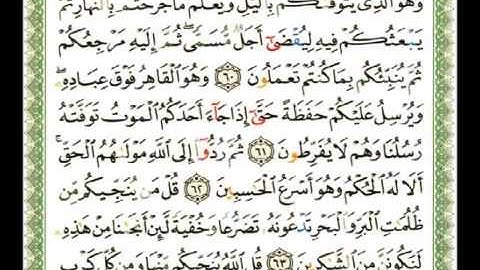 وَهُوَ ٱلَّذِى يَتَوَفَّىٰكُم بِٱلَّيْلِ وَيَعْلَمُ مَا جَرَحْتُم بِٱلنَّهَارِ ثُمَّ
يَبْعَثُكُمْ فِيهِ لِيُقْضَىٰٓ أَجَلٌ مُّسَمًّى ۖ ثُمَّ إِلَيْهِ مَرْجِعُكُمْ
ثُمَّ يُنَبِّئُكُم بِمَا كُنتُمْ تَعْمَلُونَ ٦٠ وَهُوَ ٱلْقَاهِرُ فَوْقَ عِبَادِهِۦ ۖ
وَيُرْسِلُ عَلَيْكُمْ حَفَظَةً حَتَّىٰٓ إِذَا جَآءَ أَحَدَكُمُ ٱلْمَوْتُ تَوَفَّتْهُ
رُسُلُنَا وَهُمْ لَا يُفَرِّطُونَ ٦١ ثُمَّ رُدُّوٓا۟ إِلَى ٱللَّهِ مَوْلَىٰهُمُ ٱلْحَقِّ ۚ
أَلَا لَهُ ٱلْحُكْمُ وَهُوَ أَسْرَعُ ٱلْحَـٰسِبِينَ ٦٢ قُلْ مَن يُنَجِّيكُم مِّن
ظُلُمَـٰتِ ٱلْبَرِّ وَٱلْبَحْرِ تَدْعُونَهُۥ تَضَرُّعًا وَخُفْيَةً لَّئِنْ أَنجَىٰنَا مِنْ هَـٰذِهِۦ
لَنَكُونَنَّ مِنَ ٱلشَّـٰكِرِينَ ٦٣ قُلِ ٱللَّهُ يُنَجِّيكُم مِّنْهَا وَمِن كُلِّ كَرْبٍ